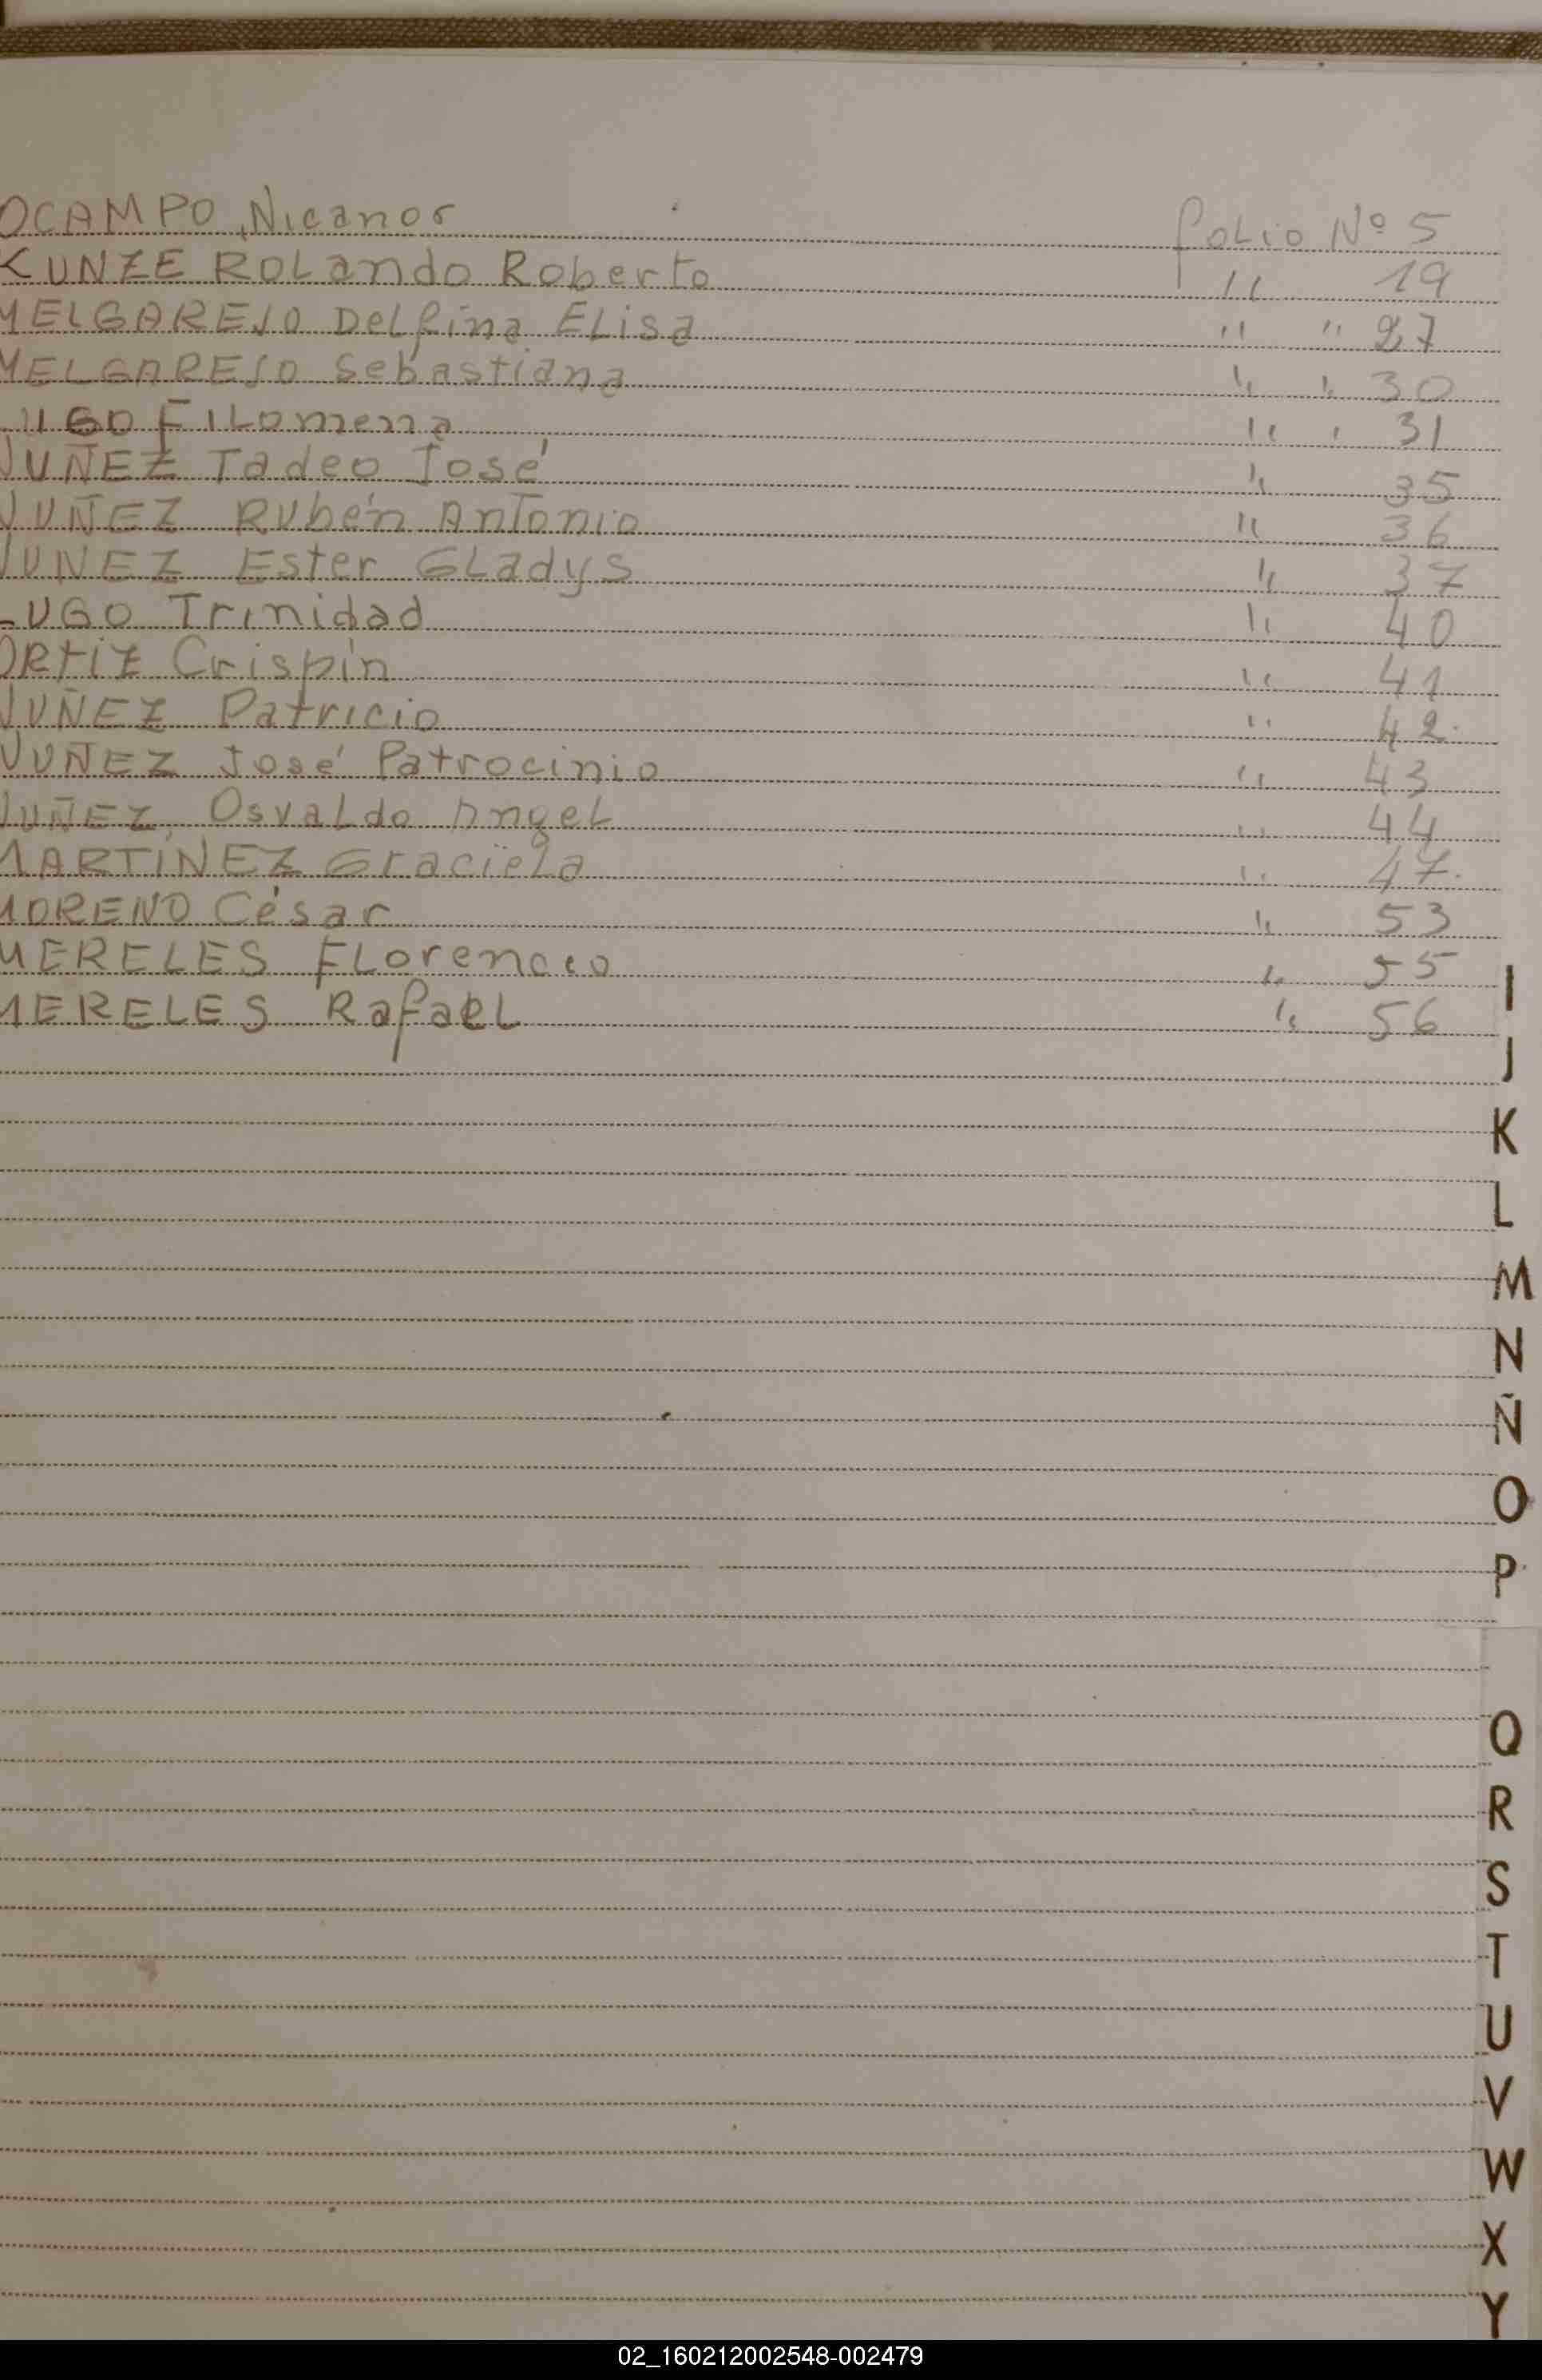 OCAMPO, Nicanor folio Nº 5
KUNZE ROLando Roberto " 19
MELGAREJO DeLfina ELisa " " 27
MELGAREJO Sebastiana " " 30
LUGO FILomena " " 31
NUÑEZ Tadeo José " 35
NUÑEZ Rubén Antonio " 36
NUNEZ Ester GLadys " 37
LUGO Trinidad " 40
ORtiz Crispín " 41
NUÑEZ Patricio " 42.
NUÑEZ José Patrocinio " 43
NUÑEZ, OsvaLdo AngeL " 44
MARTÍNEZ GracieLa " 47.
MORENO César " 53
MERELES FLorencio " 55
MERELES RafaeL " 56
I
J
K
L
M
N
Ñ
O
P
Q
R
S
T
U
V
W
X
Y
02_160212002548-002479